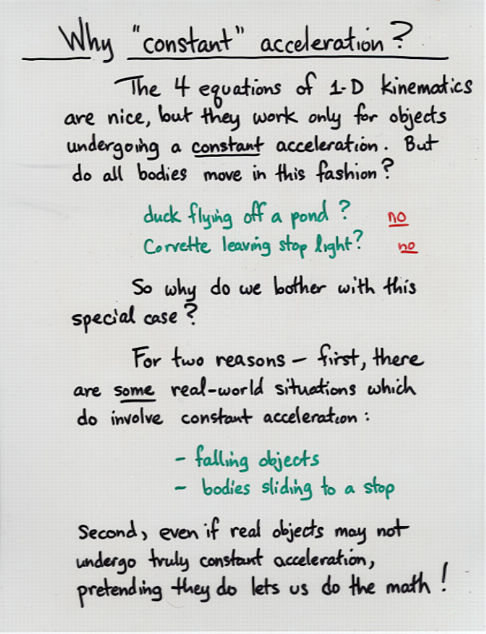 Why "constant" acceleration?
The 4 equations of 1-D kinematics
are nice, but they work only for objects
undergoing a constant acceleration. But
do all bodies move in this fashion?
duck flying off a pond? no
Corvette leaving stop light? no
So why do we bother with this
special case?
For two reasons - first, there
are some real-world situations which
do involve constant acceleration:
- falling objects
- bodies sliding to a stop
Second, even if real objects may not
undergo truly constant acceleration,
pretending they do lets us do the math!